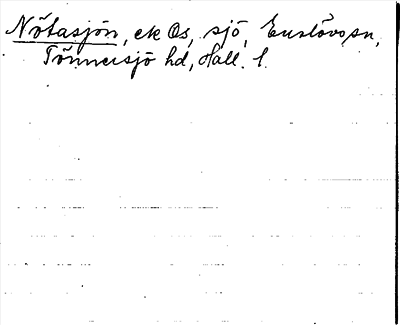 Nötasjön, ek Os, sjö, Enslövs sn,
Tönnersjö hd, Hall. l.